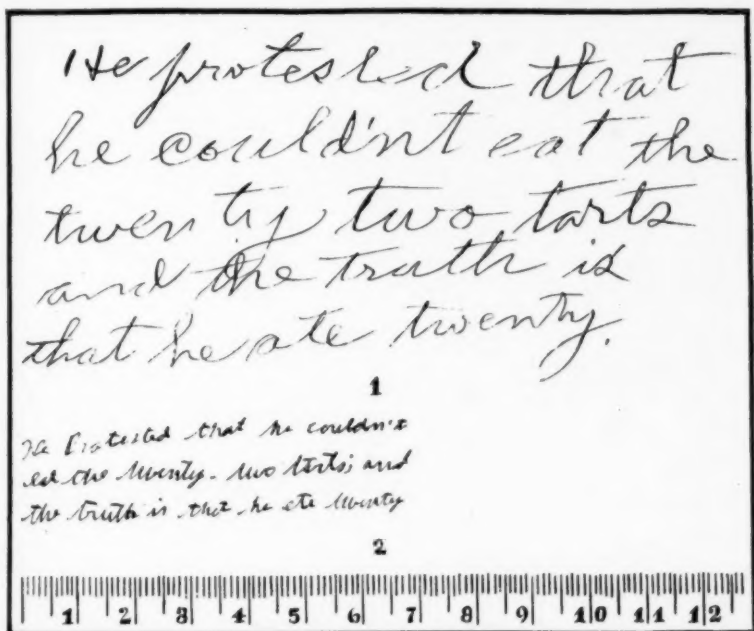 He protested that
he couldn't eat the
twenty two tarts
and the truth is
that he ate twenty.
1
He Protested that he couldn't
eat the twenty-two tarts; and
the truth is that he ate twenty
2
1 2 3 4 5 6 7 8 9 10 11 12